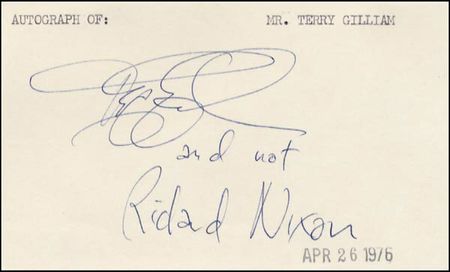 AUTOGRAPH OF: MR. TERRY GILLIAM
and not
Richard Nixon
APR 26 1976